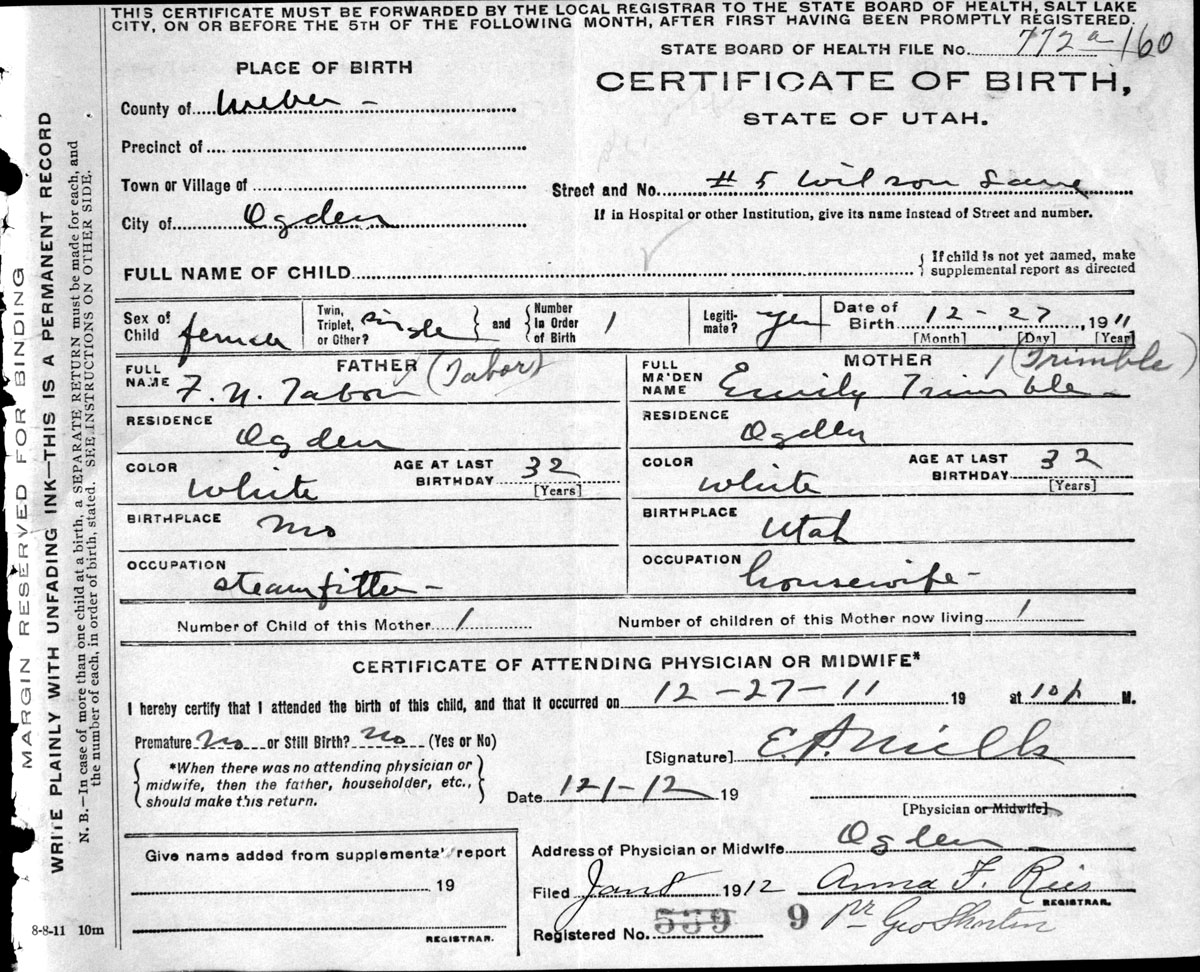 THIS CERTIFICATE MUST BE FORWARDED BY THE LOCAL REGISTRAR TO THE STATE BOARD OF HEALTH, SALT LAKE
CITY, ON OR BEFORE THE 5TH OF THE FOLLOWING MONTH, AFTER FIRST HAVING BEEN PROMPTLY REGISTERED.
STATE BOARD OF HEALTH FILE No. 772a/160
PLACE OF BIRTH
CERTIFICATE OF BIRTH,
STATE OF UTAH.
County of Weber -
Precinct of
Town or Village of
Street and No. #5 Wilson Lane
City of Ogden
If in Hospital or other Institution, give its name instead of Street and number.
FULL NAME OF CHILD
If child is not yet named, make
supplemental report as directed
Sex of Child female
Twin, Triplet, or Other? single
and
Number in Order of Birth 1
Legitimate? yes
Date of Birth 12 - 27, 1911
[Month] [Day] [Year]
FATHER
FULL NAME F. N. Tabor (Tabor)
RESIDENCE Ogden
COLOR white
AGE AT LAST BIRTHDAY 32
[Years]
BIRTHPLACE Mo
OCCUPATION steamfitter -
MOTHER
FULL MAIDEN NAME Emily Trimble - (Trimble)
RESIDENCE Ogden
COLOR white
AGE AT LAST BIRTHDAY 32
[Years]
BIRTHPLACE Utah
OCCUPATION housewife -
Number of Child of this Mother 1
Number of children of this Mother now living 1
CERTIFICATE OF ATTENDING PHYSICIAN OR MIDWIFE*
I hereby certify that I attended the birth of this child, and that it occurred on 12-27-11 19 at 10 p M.
Premature No or Still Birth? No (Yes or No)
*When there was no attending physician or
midwife, then the father, householder, etc.,
should make this return.
[Signature] E.P. Mills
Date 12/-12 19
[Physician or Midwife]
Give name added from supplemental report
19
REGISTRAR.
Address of Physician or Midwife Ogden -
Filed Jan 8 1912 Anna F. Reis
REGISTRAR.
Registered No. 539 9 pr Geo Shorten
8-8-11 10m
MARGIN RESERVED FOR BINDING
WRITE PLAINLY WITH UNFADING INK—THIS IS A PERMANENT RECORD
N. B.—In case of more than one child at a birth, a SEPARATE RETURN must be made for each, and
the number of each, in order of birth, stated. SEE INSTRUCTIONS ON OTHER SIDE.